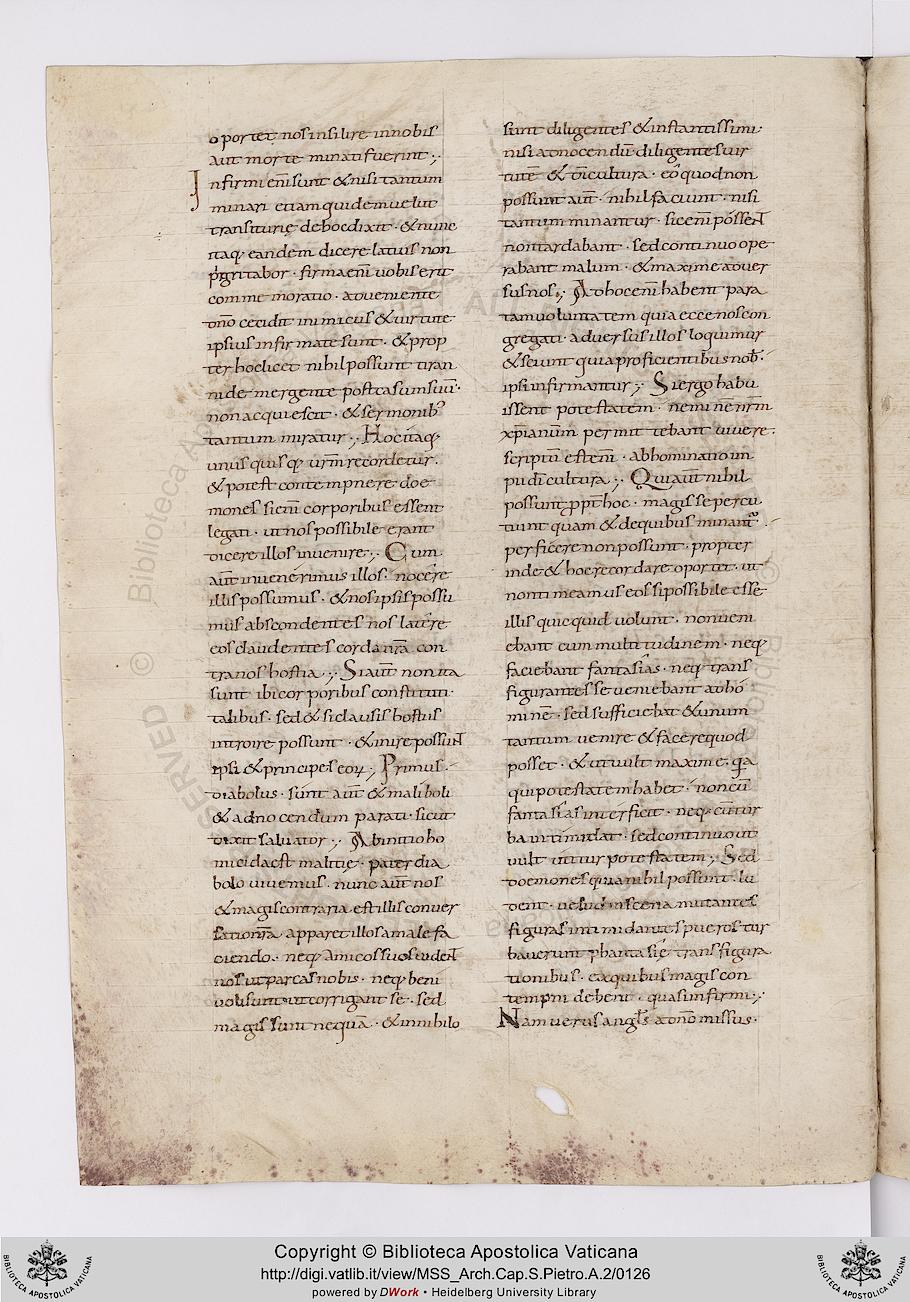 oportet nos insilire in nobis
aut morte minati fuerint ;,
Infirmi eni᷒ sunt & nisi tantum
minari etiam quidem uelut
transiturię de hoc dixit · & nunc
itaq; eandem dicere latius non
pigritabor · firma eni᷒ uobis erit
commemoratio · adueniente
dn̄o cecidit inimicus & uirtute
ipsius infirmate sunt · & prop
ter hoc licet nihil possunt tiran
nide mergente post casum suū·
non acquiescit · & sermonib;
tantum miratur ;, Hoc itaq;
unus quisq; urm̄ recordetur ·
& potest contempnere doe
mones sicen̄i corporibus essent
legati · ut nos possibile erant
dicere illos inuenire ;, Cum
aūt inuenerimus illos · nocere
illis possumus · & nos ipsis possu
mus abscondentes nos latere
eos claudentes corda nr̄a con
tra nos hostia ;, Si aūt non ita
sunt ibi corporibus constituti ·
talibus · sed & si clausis hostiis
introire possunt · & inire possunt
ipsi & principes eoꝝ ;, Primus ·
diabolus · sunt aūt & maliboli
& ad nocendum parati · sicut
dixit saluator ;, Ab initio ho
micida est maltię · pater dia
bolo uiuemus · nunc aūt nos
& magis contraria est illis conuer
satio nr̄a · apparet illos a male fa
ciendo · neq; amicos suos uident
nos ut parcas nobis · neq; beni
uoli sunt ut corrigant se · sed
magis sunt nequā · & in nihilo
sunt diligentes & instantissimi ·
nisi ad nocendū · diligentes uir
tutē & dī cultura · eo quod non
possunt aūt · nihil faciunt · nisi
tantum minantur · si cen̄i possent
non tardabant · sed continuo ope
rabant malum · & maxime aduer
sus nos ;, Ad hoc en̄i habent para
tam uoluntatem quia ecce nos con
gregati · aduersus illos loquimur
& sciunt quia proficientibus nob̄ ·
ipsi infirmantur ;, Si ergo habu
issent potestatem · neminē nr̄m
xp̄ianūm permittebant uiuere ·
scriptū est en̄i · abhominatio im
pii dī cultura ;, Quia aūt nihil
possunt ppt̄ hoc · magis se percu
tiunt quam & de quibus minant̄ ·
perficere non possunt · propter
inde & hoc recordare oportet · ut
non timeamus eos si possibile esse
illis quicquid uolunt · non ueni
ebant cum multitudinem · neq;
faciebant fantasias · neq; trans
figurantes se ueniebant ad ho
minē · sed sufficiebat & unum
tantum uenire & facere quod
posset · & ut uult maxime · q̄a
qui potestatem habet · non cū
fantasias interficit · neq; cū tur
ba intimidat · sed continuo ut
uult utitur potestatem ;, Sed
doemones quia nihil possunt · lu
dent · uelud in scena mutantes
figuras intimidantes pueros tur
bauerunt phantasię transfigura
tionibus · ex quibus magis con
tempni debent · quasi infirmi ;,
Nam uerus angl̄s a dn̄o missus ·
Copyright © Biblioteca Apostolica Vaticana
http://digi.vatlib.it/view/MSS_Arch.Cap.S.Pietro.A.2/0126
powered by DWork • Heidelberg University Library